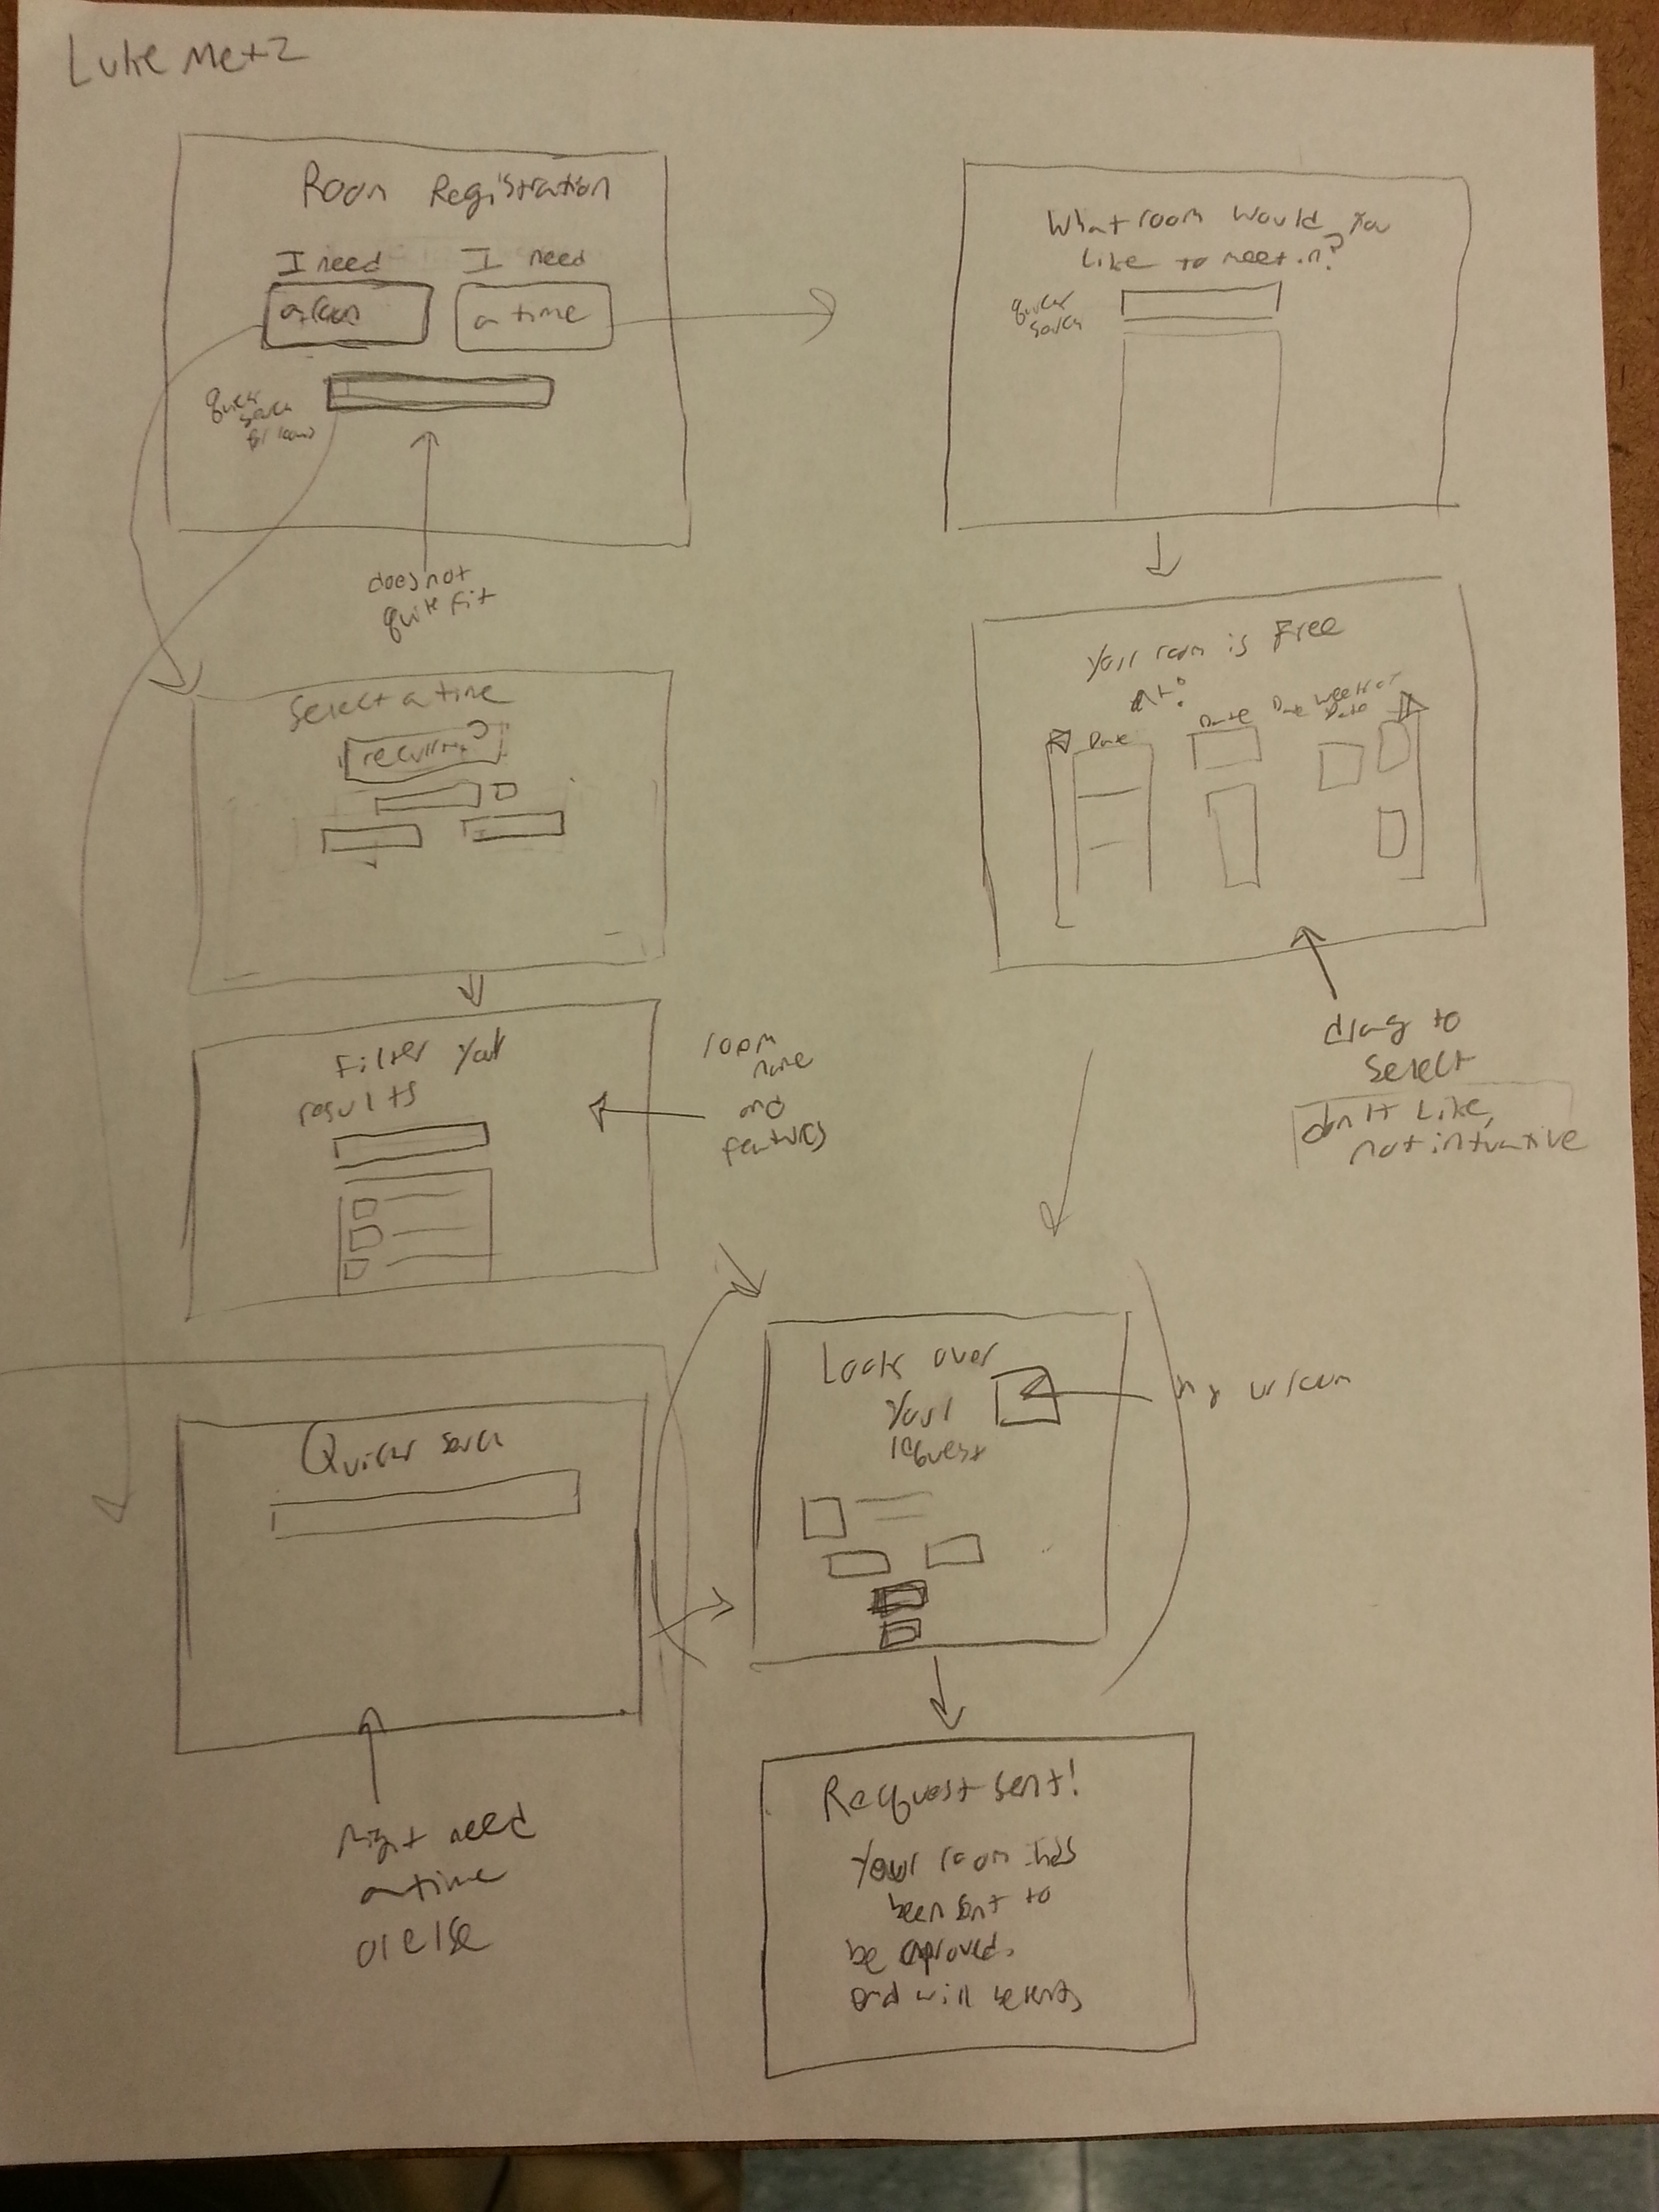 Luke Metz
Room Registration
I need
I need
a room
a time
quick
search
for rooms
does not
quite fit
What room would you
like to meet in?
quick
search
Select a time
recurring?
Your room is Free
At:
Date
Date
Date
Date
drag to
select
don't like,
not intuative
Filter your
results
room
name
and
features
Quick search
might need
a time
or else
Look over
your
request
Request sent!
Your room has
been sent to
be approved.
and will be